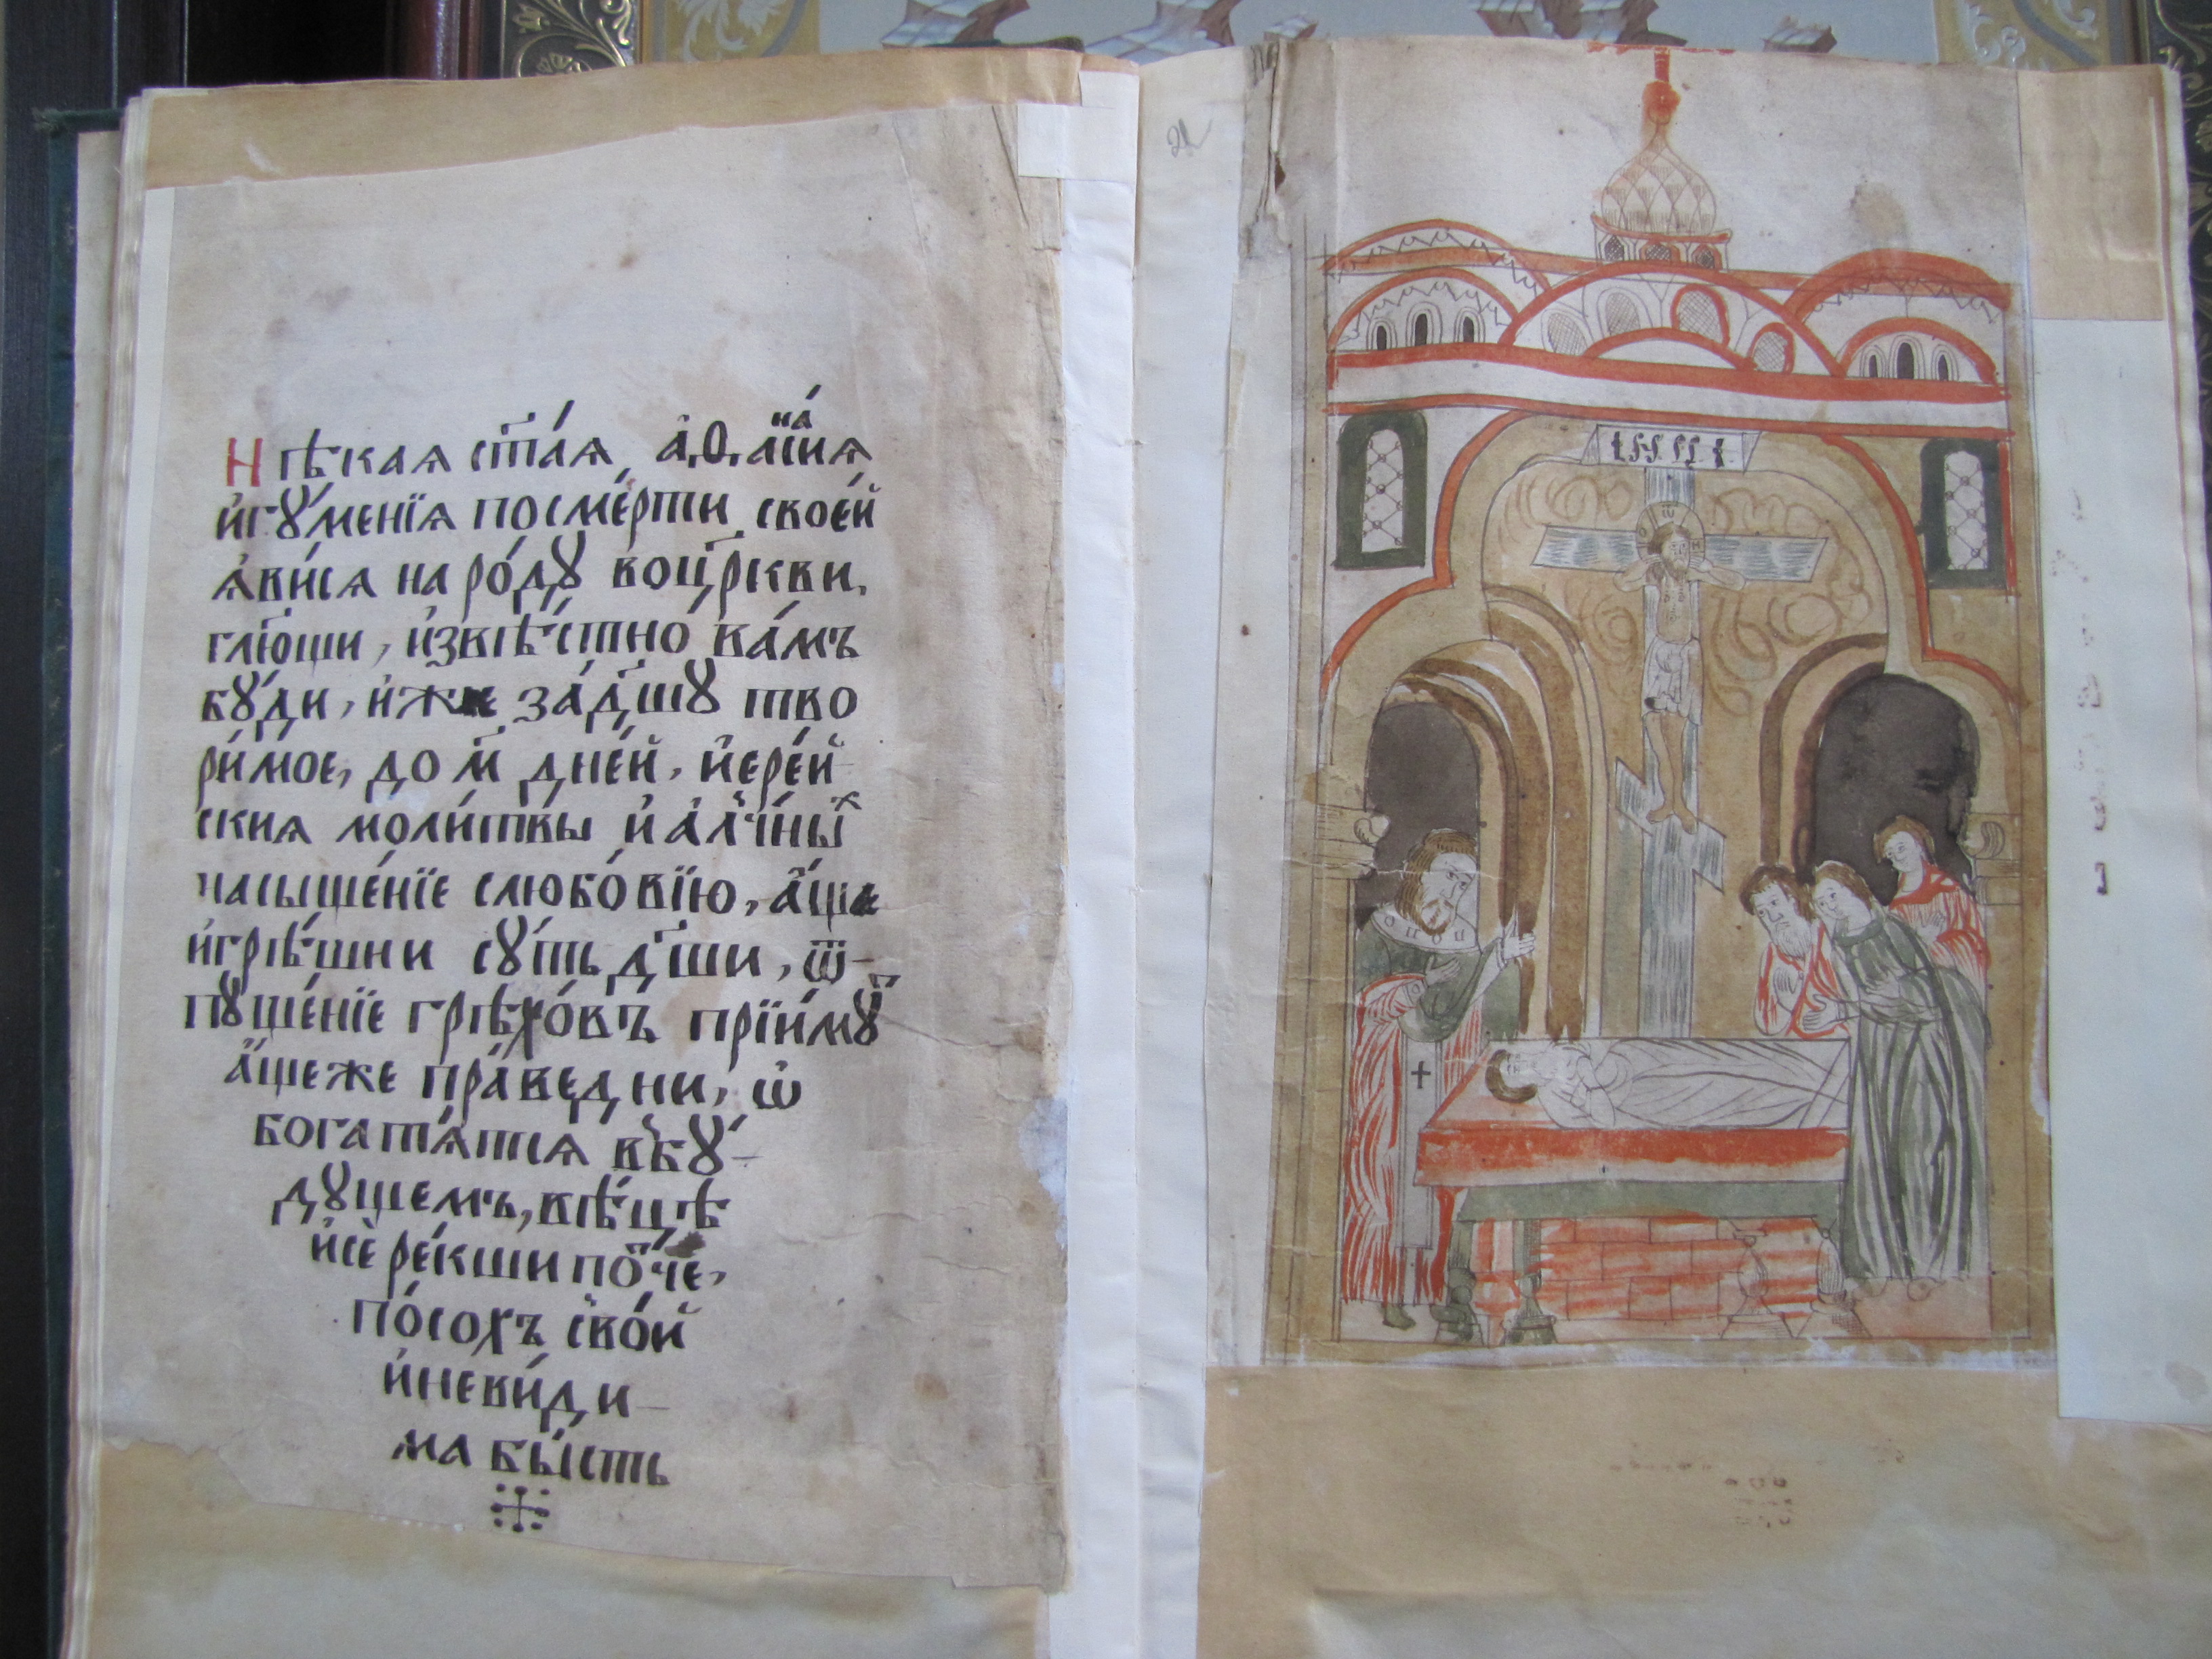 Нѣкая ст҃ая аѳанасия
игꙋмения посмерти своей
ꙗвися народꙋ воцр҃кви,
гл҃ющи, извѣстно вамъ
бꙋди, иже задш҃ꙋ тво
римое, дом҃ дней, иерей
ския молитвы иалчных
насыщенїе слюбовїю, аще
игрѣшни сꙋть дш҃и, ѿ-
пꙋщенїе грѣховъ прїимꙋт
ащеже праведни, ѡ
богатятся вбꙋ-
дꙋщемъ, вѣцѣ
исе рекши поч҃е,
посохъ свой
иневиди-
ма бысть
21